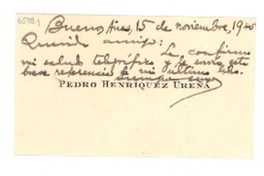 Buenos Aires, 15 de noviembre, 1940
Querido amigo: Le confirmo
mi saludo telegráfico y le envío esta
breve referencia de mi último libro.
Siempre suyo
PEDRO HENRÍQUEZ UREÑA